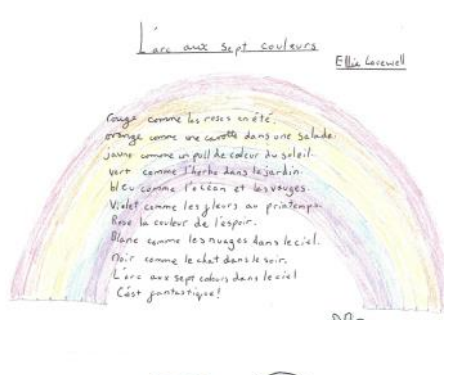 L'arc aux sept couleurs
Ellie Lovewell
rouge comme les roses en été.
orange comme une carotte dans une salade.
jaune comme un pull de coleur du soleil.
vert comme l'herbe dans le jardin.
bleu comme l'océan et les vauges.
Violet comme les fleurs au printemps.
Rose la couleur de l'espoir.
Blanc comme les nuages dans le ciel.
Noir comme le chat dans le soir.
L'arc aux sept colours dans le ciel
C'est fantastique!